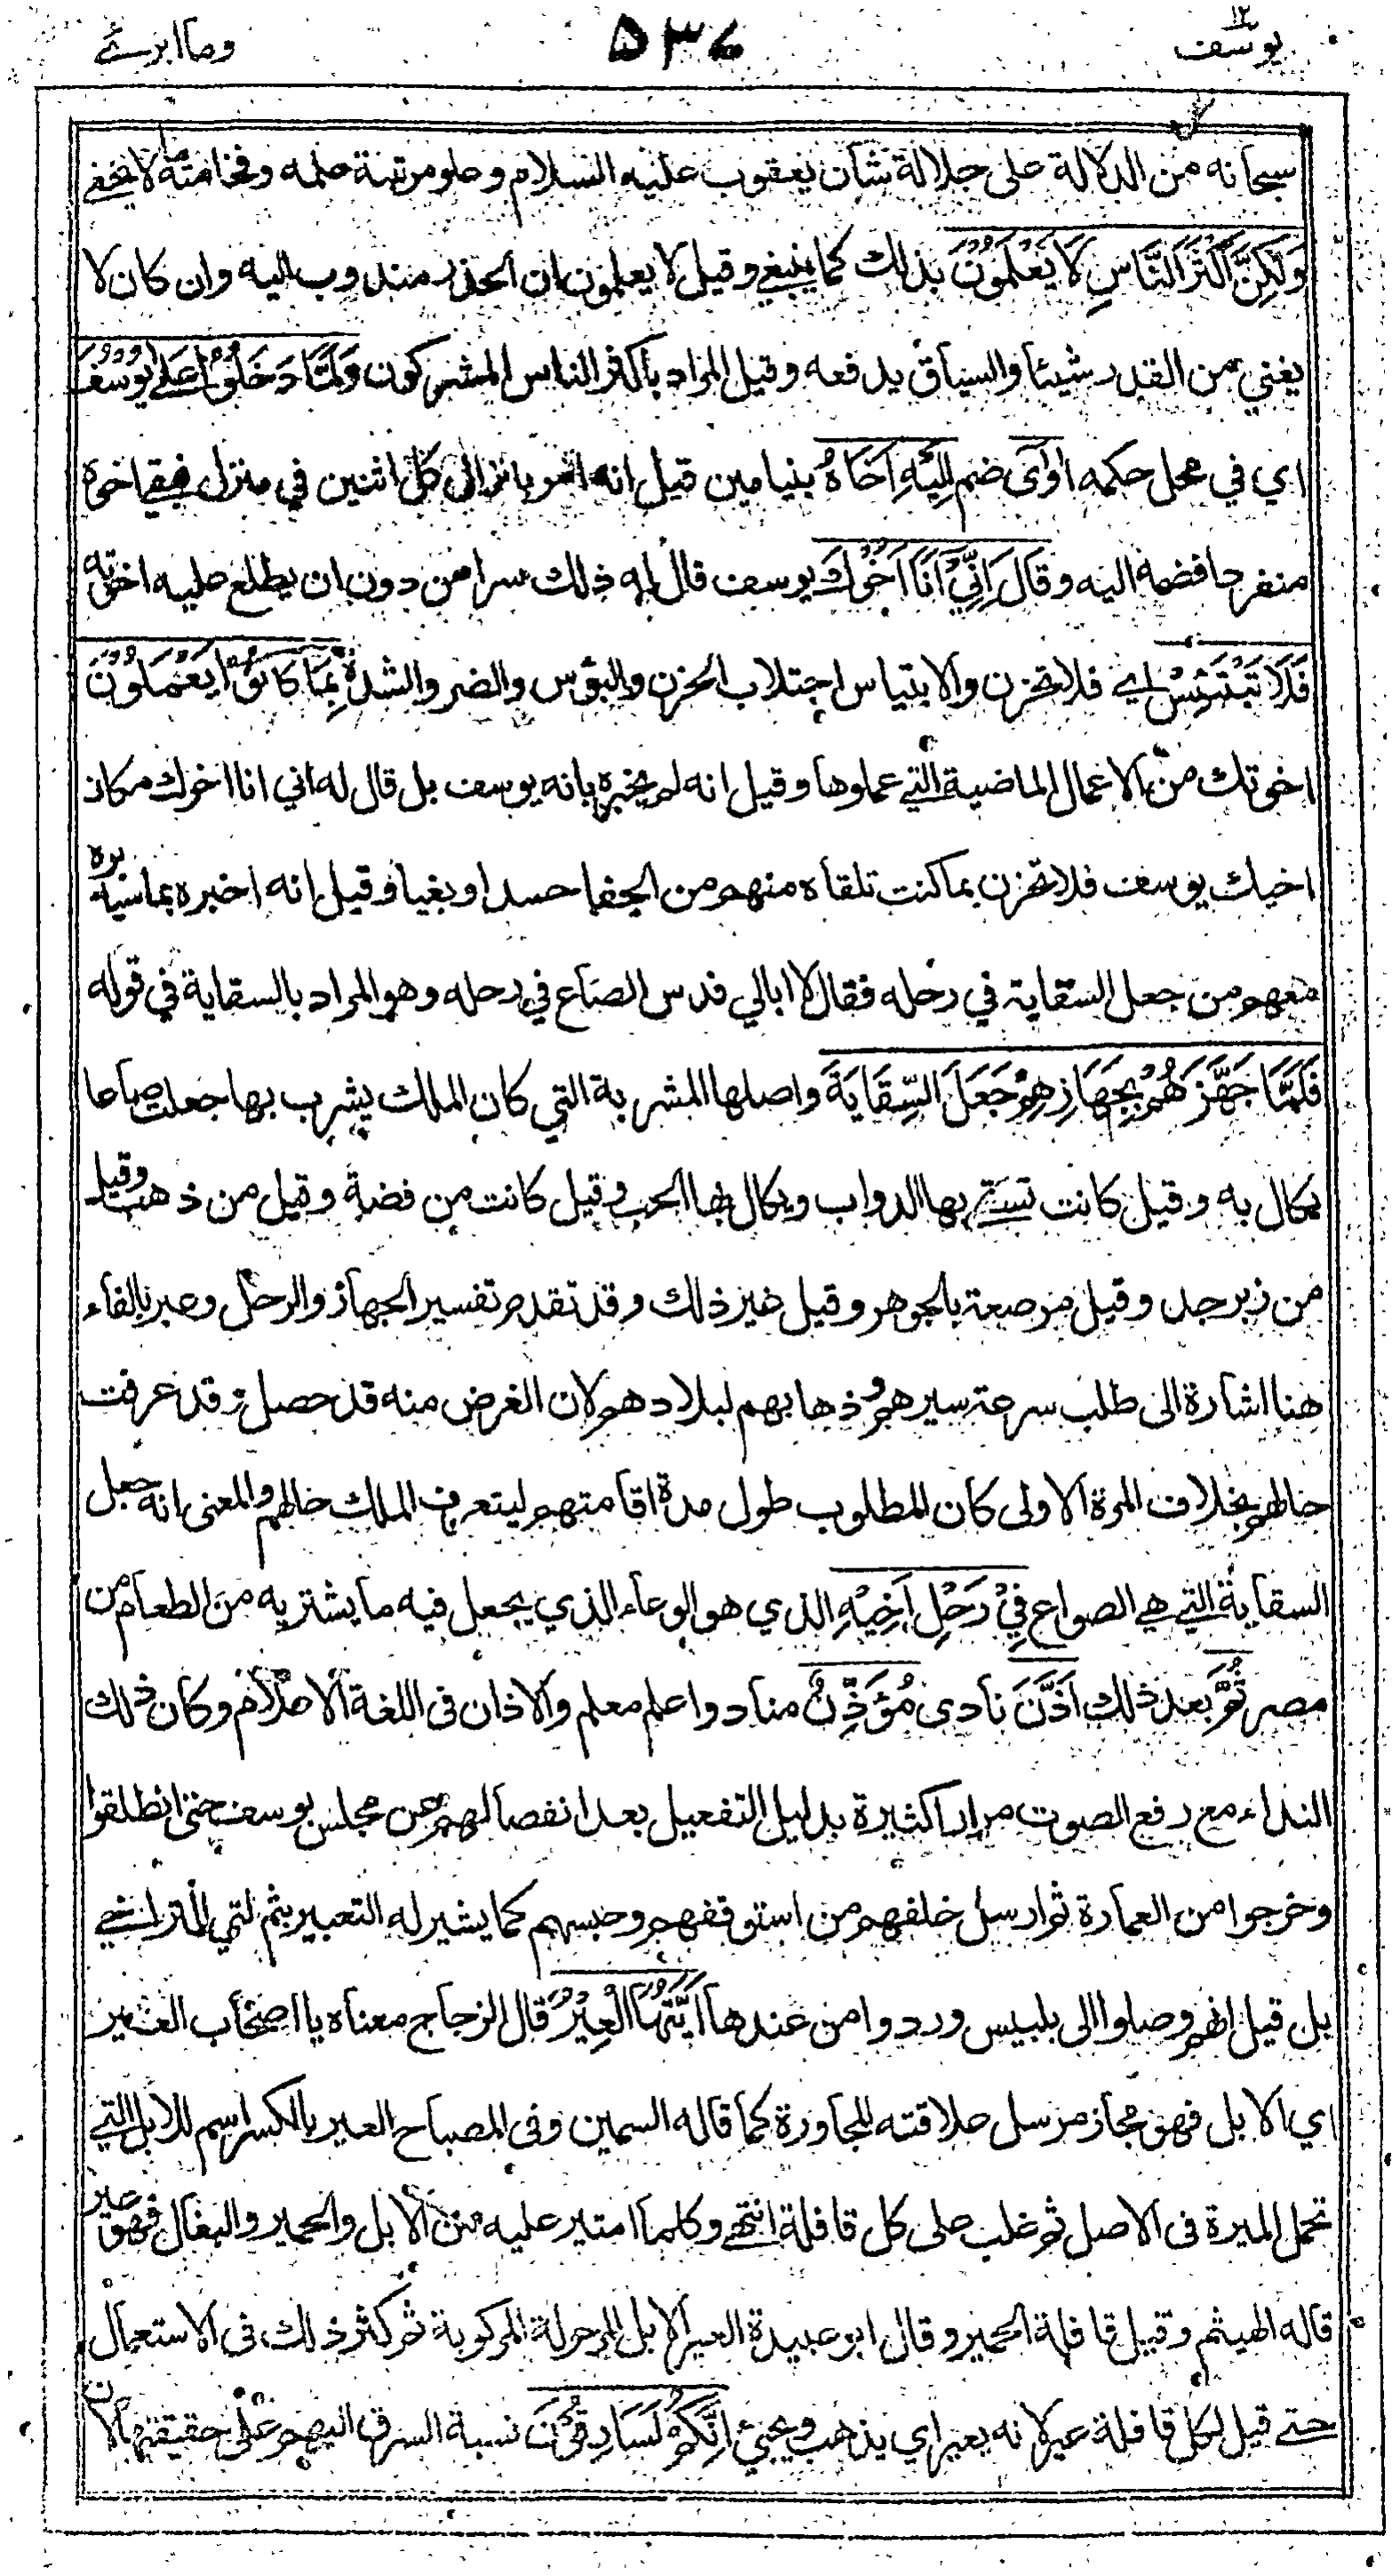 ١٢
يوسف ۵۳۷ وما ابرئ
سبحانه من الدلالة على جلالة شأن يعقوب عليه السلام وعلو مرتبة علمه وفخامته ما لا يخفى
وَلٰكِنَّ أَكْثَرَ النَّاسِ لَا يَعْلَمُوْنَ بذلك كما ينبغي وقيل لا يعلمون ان الحذر مندوب اليه وان كان لا
يغني من القدر شيئا والسياق يدفعه وقيل المراد باكثر الناس المشركون وَلَمَّا دَخَلُوْا عَلٰى يُوْسُفَ
اي في محل حكمه اٰوٰى ضم اِلَيْهِ اَخَاهُ بنيامين قيل انه امر بانزال كل اثنين في منزل فبقي اخوه
منفردا فضمه اليه وقَالَ اِنِّيْ اَنَا اَخُوْكَ يوسف قال له ذلك سرا من دون ان يطلع عليه اخوته
فَلَا تَبْتَئِسْ اي فلا تحزن والابتياس اجتلاب الحزن والبؤس والضر والشدة بِمَا كَانُوْا يَعْمَلُوْنَ
اخوتك من الاعمال الماضية التي عملوها وقيل انه لم يخبره بانه يوسف بل قال له اني انا اخوك مكان
اخيك يوسف فلا تحزن بما كنت تلقاه منهم من الجفا حسدا وبغيا وقيل انه اخبره بما سيدبره
معهم من جعل السقاية في رحله فقال لا ابالي فدس الصاع في رحله وهو المراد بالسقاية في قوله
فَلَمَّا جَهَّزَهُمْ بِجَهَازِهِمْ جَعَلَ السِّقَايَةَ واصلها المشربة التي كان الملك يشرب بها جعلت صاعا
يكال به وقيل كانت تسقى بها الدواب ويكال بها الحب وقيل كانت من فضة وقيل من ذهب وقيل
من زبرجد وقيل مرصعة بالجوهر وقيل غير ذلك وقد تقدم تفسير الجهاز والرحل وعبر بالفاء
هنا اشارة الى طلب سرعة سيرهم وذهابهم لبلادهم لان الغرض منه قد حصل وقد عرفت
حالهم بخلاف المرة الاولى كان المطلوب طول مدة اقامتهم ليتعرف الملك حالهم والمعنى انه جعل
السقاية التي هي الصواع فِيْ رَحْلِ اَخِيْهِ الذي هو الوعاء الذي يجعل فيه ما يشتريه من الطعام من
مصر ثُمَّ بعد ذلك اَذَّنَ نادى مُؤَذِّنٌ مناد واعلم معلم والاذان في اللغة الاعلام وكان ذلك
النداء مع رفع الصوت مرارا كثيرة بدليل التفعيل بعد انفصالهم عن مجلس يوسف حتى انطلقوا
وخرجوا من العمارة ثم ارسل خلفهم من استوقفهم وحبسهم كما يشير له التعبير بثم التي للتراخي
بل قيل انهم وصلوا الى بلبيس وردوا من عندها اَيَّتُهَا الْعِيْرُ قال الزجاج معناه يا اصحاب العير
اي الابل فهو مجاز مرسل علاقته المجاورة كما قاله السمين وفي المصباح العير بالكسر اسم للابل التي
تحمل الميرة في الاصل ثم غلب على كل قافلة انتهى وكلما امتير عليه من الابل والحمير والبغال فهو عير
قاله الهيثم وقيل قافلة الحمير وقال ابو عبيدة العير الابل المرحولة المركوبة ثم كثر ذلك في الاستعمال
حتى قيل لكل قافلة عير لانه يعير اي يذهب ويجيئ اِنَّكُمْ لَسَارِقُوْنَ نسبة السرق اليهم على حقيقتها لان